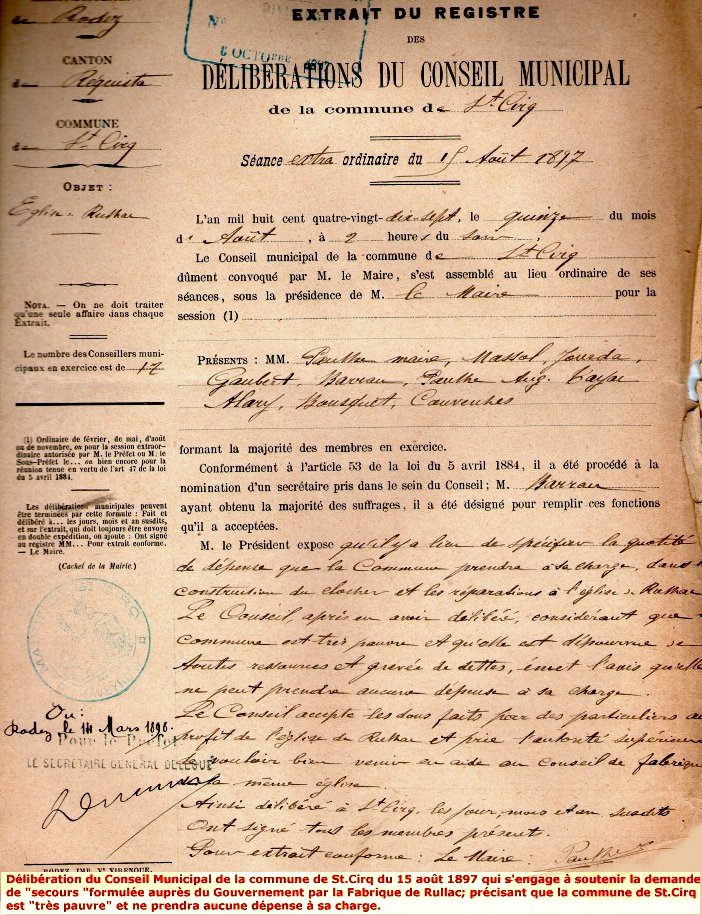 de Rodez
CANTON
de Réquista
COMMUNE
de St. Cirq
OBJET :
Eglise Rullac
NOTA. — On ne doit traiter
qu'une seule affaire dans chaque
Extrait.
Le nombre des Conseillers muni-
cipaux en exercice est de
(1) Ordinaire de février, de mai, d'août
ou de novembre, ou pour la session extraor-
dinaire autorisée par M. le Préfet ou M. le
Sous-Préfet le... ou bien encore pour la
réunion tenue en vertu de l'art 47 de la loi
du 5 avril 1884.
Les délibérations municipales peuvent
être terminées par cette formule : Fait et
délibéré à... les jours, mois et an susdits,
et sur l'extrait, qui doit toujours être envoyé
en double expédition, on ajoute : Ont signé
au registre MM... Pour extrait conforme.
— Le Maire.
(Cachet de la Mairie.)
Vu :
Rodez le 14 Mars 1898.
Pour le Préfet
LE SECRÉTAIRE GÉNÉRAL DÉLÉGUÉ
RODEZ, IMP. Vve VIRENQUE.
No
8 OCTOBRE 1897
EXTRAIT DU REGISTRE
DES
DÉLIBÉRATIONS DU CONSEIL MUNICIPAL
de la commune de St. Cirq
Séance extra ordinaire du 15 Août 1897
L'an mil huit cent quatre-vingt-dix-sept, le quinze du mois
d' Août, à 2 heures du soir.
Le Conseil municipal de la commune de St Cirq
dûment convoqué par M. le Maire, s'est assemblé au lieu ordinaire de ses
séances, sous la présidence de M. le Maire pour la
session (1)
PRÉSENTS : MM. Panthe maire, Massol, Jourda,
Gaubert, Barrau, Panthe Aug.
Alary, Bousquet, Couvenhes
formant la majorité des membres en exercice.
Conformément à l'article 53 de la loi du 5 avril 1884, il a été procédé à la
nomination d'un secrétaire pris dans le sein du Conseil ; M. Barrau
ayant obtenu la majorité des suffrages, il a été désigné pour remplir ces fonctions
qu'il a acceptées.
M. le Président expose qu'il y a lieu de spécifier la quotité
de dépense que la Commune prendra à sa charge, dans
construction du clocher et les réparations à l'église de Rullac
Le Conseil, après en avoir délibéré, considérant que
commune est très pauvre et qu'elle est dépourvue de
toutes ressources et grevée de dettes, émet l'avis qu'elle
ne peut prendre aucune dépense à sa charge.
Le Conseil accepte les dons faits par des particuliers au
profit de l'église de Rullac et prie l'autorité supérieure
de vouloir bien venir en aide au Conseil de fabrique
de la même église.
Ainsi délibéré à St Cirq, les jour, mois et an susdits.
Ont signé tous les membres présents.
Pour extrait conforme : Le Maire : Panthe
Délibération du Conseil Municipal de la commune de St.Cirq du 15 août 1897 qui s'engage à soutenir la demande
de "secours "formulée auprès du Gouvernement par la Fabrique de Rullac; précisant que la commune de St.Cirq
est "très pauvre" et ne prendra aucune dépense à sa charge.